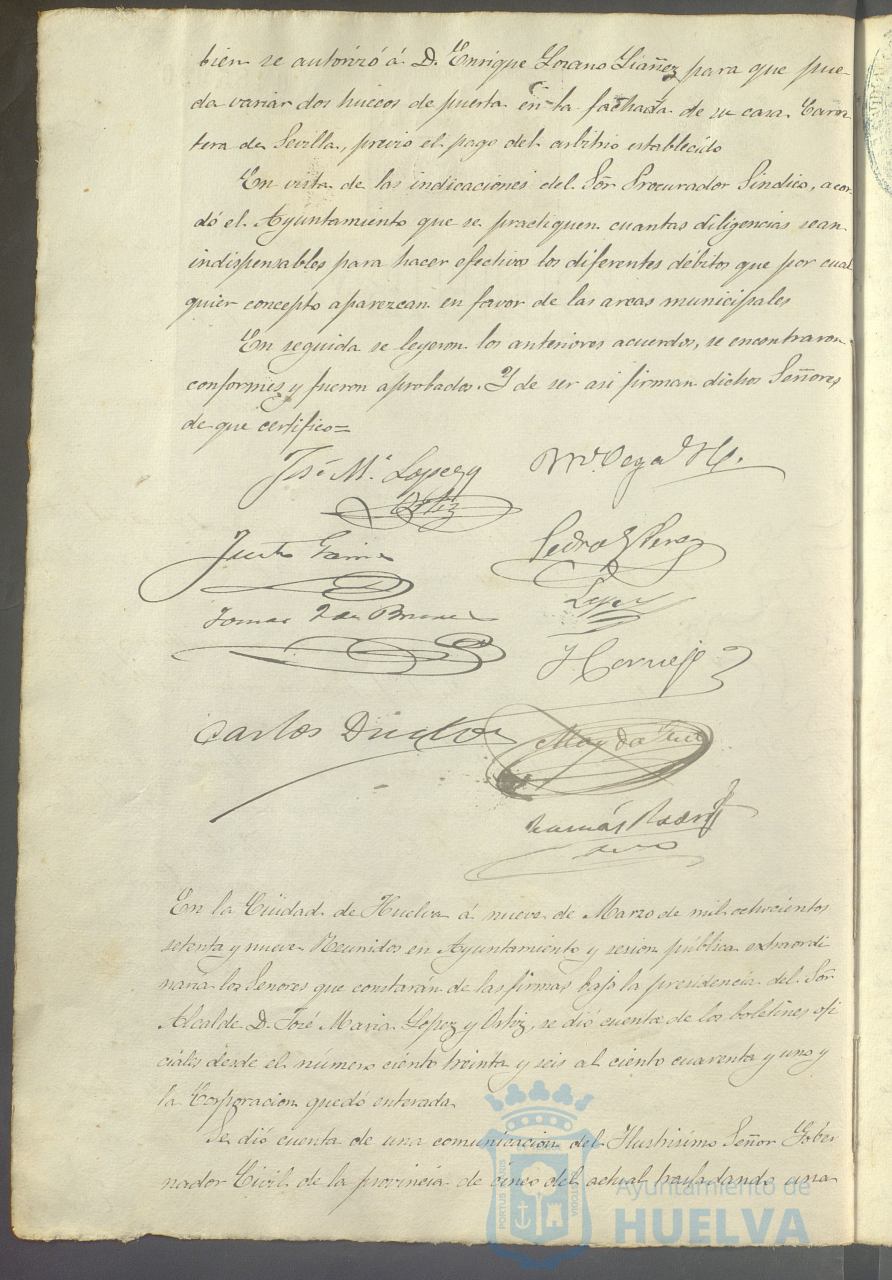 bien se autorizó á D. Enrique Lozano Liáñez para que pue-
da variar dos huecos de puerta en la fachada de su casa Carre
tera de Sevilla, previo el pago del arbitrio establecido
En vista de las indicaciones del Sõr Procurador Sindico, acor
dó el Ayuntamiento que se practiquen cuantas diligencias sean
indispensables para hacer efectivos los diferentes débitos que por cual
quier concepto aparezcan en favor de las arcas municipales
En seguida se leyeron los anteriores acuerdos, se encontraron
conformes y fueron aprobados. Y de ser asi firman dichos Señores
de que certifico=
José Mª Lopez y
Ortiz
Mel. Vega
Justo
Pedro Perez
Lopez
Tomas
H Cornejo
Carlos
Tomás Rodri
En la Ciudad de Huelva á nueve de Marzo de mil ochocientos
setenta y nueve Reunidos en Ayuntamiento y sesion pública extraordi
naria los Senores que constarán de las firmas bajo la presidencia del Sõr
Alcalde D. José Maria López y Ortiz, se dió cuenta de los boletines ofi
ciales desde el número ciento treinta y seis al ciento cuarenta y uno y
la Corporacion quedó enterada
Se dió cuenta de una comunicacion del Ilustrisimo Señor Gober
nador Civil de la provincia de cinco del actual trasladando una
PORTUS MARIS
CUSTODIA
Ayuntamiento de
HUELVA